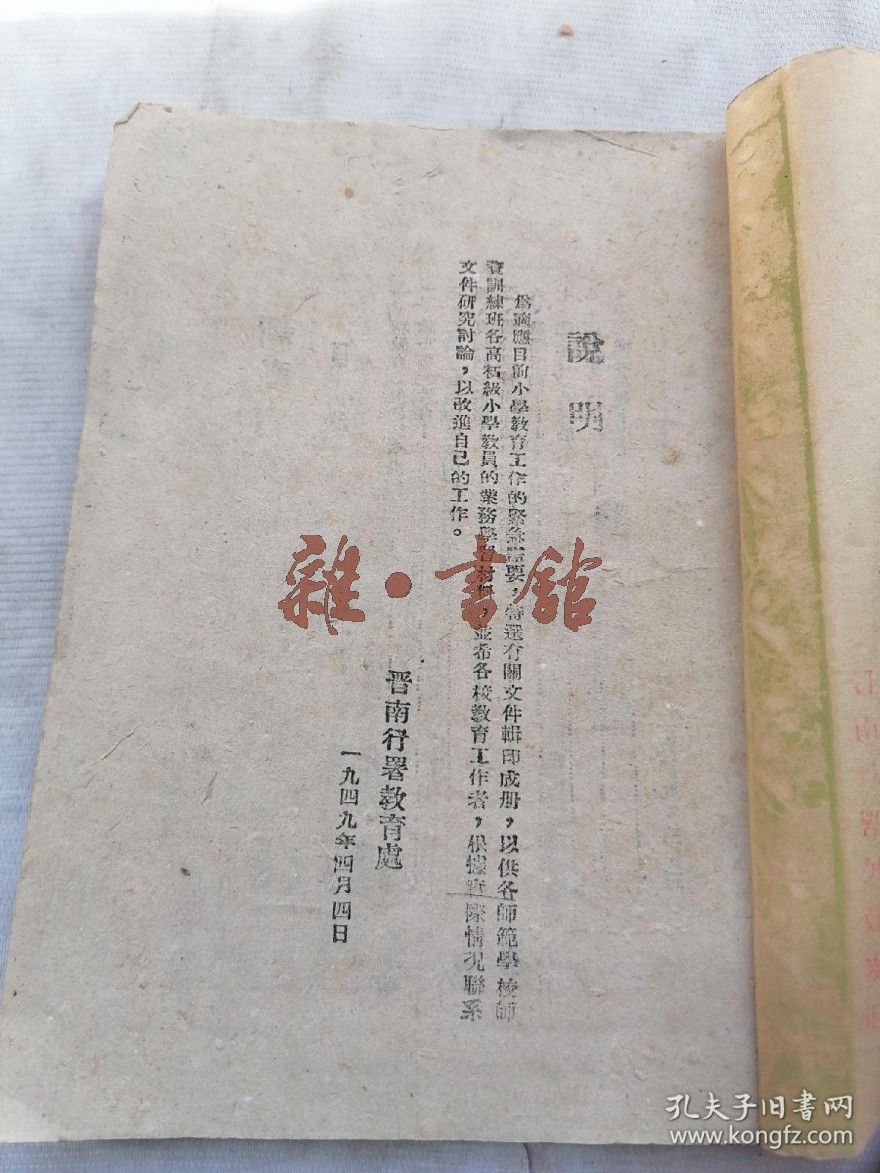 說明
爲適應目前小學教育工作的緊急需要，特選有關文件輯印成册，以供各師範學校師
資訓練班各高初級小學教員的業務學習材料，並希各校教育工作者，根據實際情况聯系
文件研究討論，以改進自己的工作。
晋南行署教育處
一九四九年四月四日
雜·書館
孔夫子旧书网
www.kongfz.com